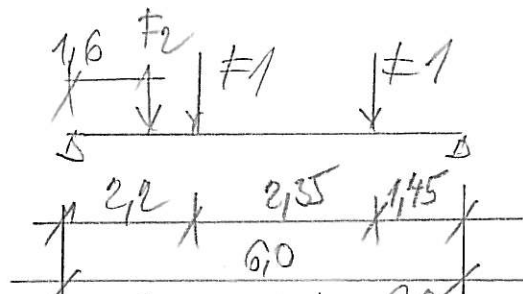 1,6 F2 F1 F1
2,2 2,35 1,45
6,0